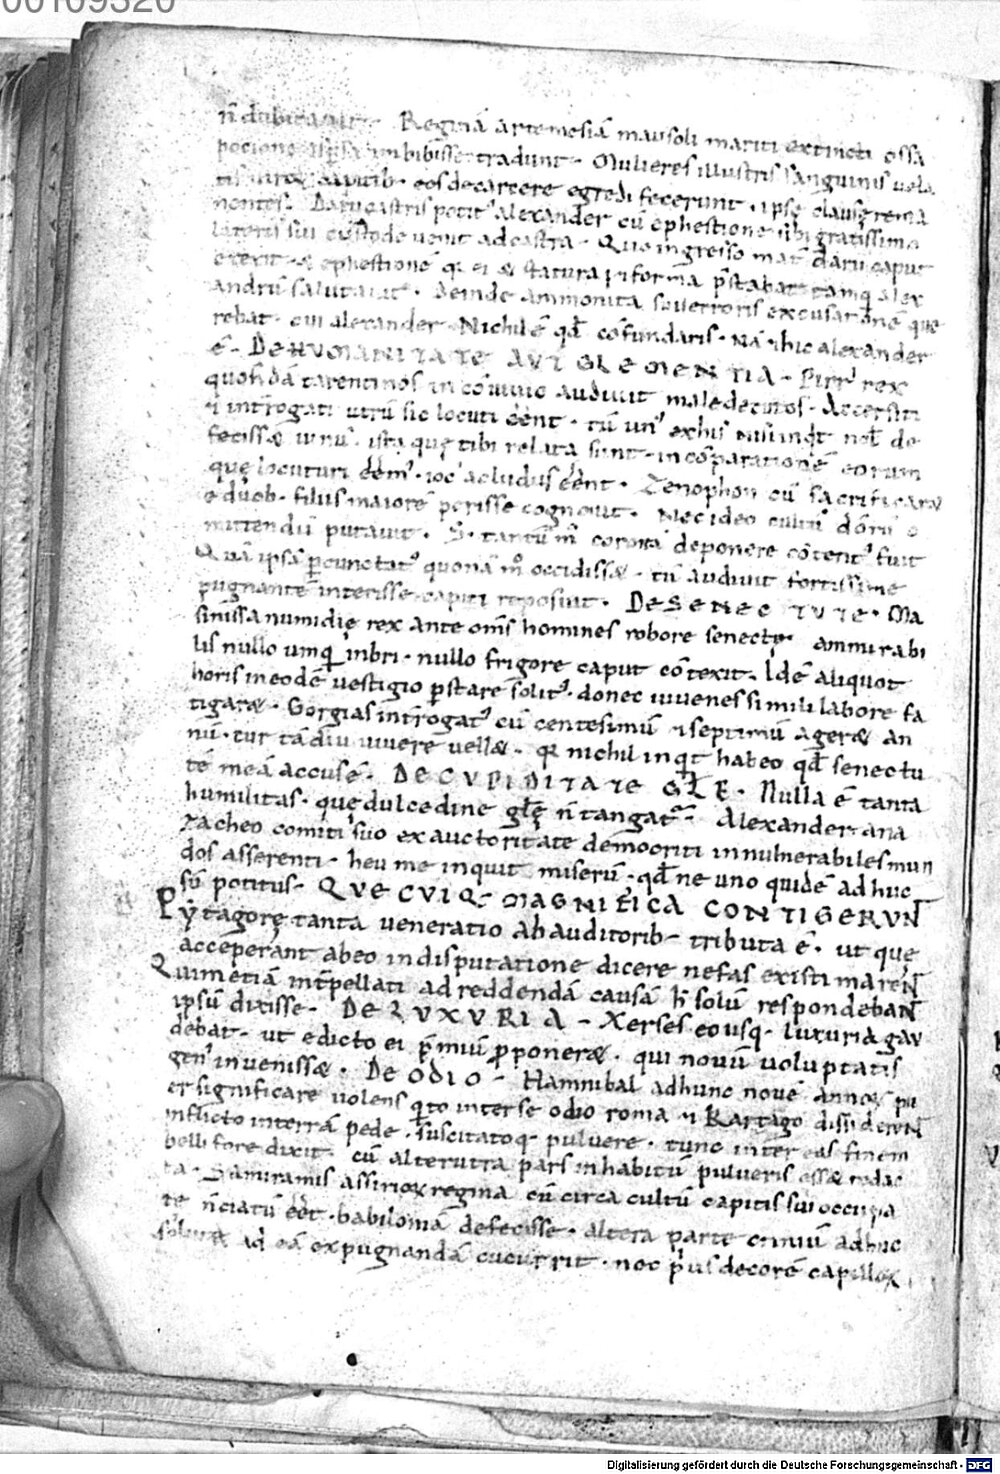 00109320
n̄ dubitauit. Reginā artemesiā mausoli mariti extincti ossa
pocione imbibisse tradunt. Mulieres illustris sanguinis uela
tis capitib. eos de carcere egredi fecerunt. ipse clausę rema
nentes. Darii castris potit᾽ alexander cū ephestione sibi gratissimo
lateris sui custode uenit ad castra. Quo ingresso mat̄ darii caput
erexit. & ephestionē q̄ ei & statura & forma p̄stabat tamq̄ alex
andrū salutauit. Deinde ammonita sui erroris excusationē que
rebat. cui alexander. Nichil ē qd̄ cōfundaris. Nā & hic alexander
ē. DE HVMANITATE AVT CLEMENTIA. Pirr᾽ rex
quosdā tarentinos in cōuiuio audiuit maledicos. Accersiti
& int̄rogati utrū sic locuti eēnt. tū un᾽ ex his nisi inqt nob̄ de
fecissæ uinū. ista quę tibi relata sunt. in cōparationē eorum
quę locuturi eēm᾽. ioc᾽ ac ludus eēnt. Zenophon cū sacrificaræ
e duob. filiis maiorē perisse cognouit. Nec ideo cultū dōrū o
mittendū putauit. S; tantū m̄ coronā deponere cōtent᾽ fuit
Quā ipsā p̄cunctat᾽ quonā m̊ occidissæ. tū audiuit fortissime
pugnantē interisse. capiti reposuit. DE SENECTVTE. Ma
sinissa numidię rex ante om̄s homines robore senectę ammirabi
lis nullo umq̄ inbri. nullo frigore caput cōtexit. Idē aliquot
horis in eodē uestigio p̄stare solit᾽. donec iuuenes simili labore fa
tigaræ. Gorgias int̄rogat᾽ cū centesimū & septimū ageræ an
nū. cur tādiu uiuere uellæ. q̄ nichil inqt habeo qd̄ senectu
tē meā accusē. DE CVPIDITATE GL̄E. Nulla ē tanta
humilitas. quę dulcedine gl̄ę n̄ tangat᾽. Alexander ana
zacheo comiti suo ex auctoritate democriti innulnerabiles mun
dos asserenti. heu me inquit miserū. qd̄ ne uno quidē ad huc
sū potitus. QVE CVIQ. MAGNIFICA CONTIGERVN̄
Pytagorę tanta ueneratio ab auditorib. tributa ē. ut que
acceperant ab eo in disputatione dicere nefas existimaren̄
Quin etiā int̄pellati ad reddendā causā h̄ solū respondeban̄
ipsū dixisse. DE LVXVRIA. Xerses eo usq. luxuria gau
debat. ut edicto ei p̄miū p̄poneræ. qui nouū uoluptatis
gen᾽ inuenissæ. DE ODIO. Hannibal ad hunc nouē annoꝝ pu
er significare uolens q̄to inter se odio roma & Kartago dissideren̄
inflicto in terrā pede. suscitatoq. puluere. tunc inter eas finem
belli fore dixit. cū alterutra pars in habitū pulueris essæ redac
ta. Samiramis assirioꝝ regina cū circa cultū capitis sui occupa
te n̄ciatū eēt. babiloniā defecisse. altera parte crinium adhuc
soluta ad eā expugnandā cucurrit. nec p̄us decorē capilloꝝ
Digitalisierung gefördert durch die Deutsche Forschungsgemeinschaft - DFG